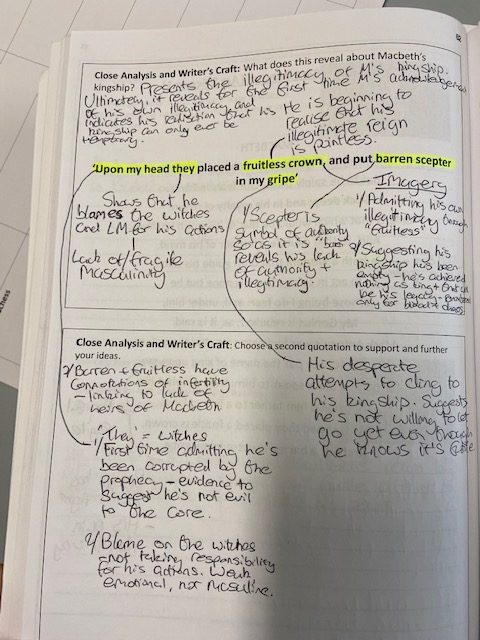 82
Close Analysis and Writer's Craft: What does this reveal about Macbeth's
kingship? Presents the illegitimacy of M's kingship.
Ultimately, it reveals for the first time M's acknowledgement
of his own illegitimacy and
indicates his realisation that his
kingship can only ever be
temporary.
He is beginning to
realise that his
illegitimate reign
is pointless.
'Upon my head they placed a fruitless crown, and put barren scepter
in my gripe'
Shows that he
blames the witches
and LM for his actions
Lack of/fragile
masculinity
1/Scepter is
symbol of authority
so as it is "
reveals his lack
of authority +
illegitimacy.
Imagery
1/Admitting his own
illegitimacy through
"fruitless"
2/Suggesting his
kingship has been
empty - he's achieved
nothing as king + that will
be his legacy -
only for bloodshed + chaos!
Close Analysis and Writer's Craft: Choose a second quotation to support and further
your ideas.
2/Barren + fruitless have
connotations of infertility
- linking to lack of
heirs of Macbeth
1/"They" = witches
First time admitting he's
been corrupted by the
prophecy - evidence to
suggest he's not evil
to the core.
2/Blame on the witches
- not taking responsibility
for his actions. Weak
emotional, not masculine.
His desperate
attempts to cling to
his kingship. Suggests
he's not willing to let
go yet even though
he knows it's futile